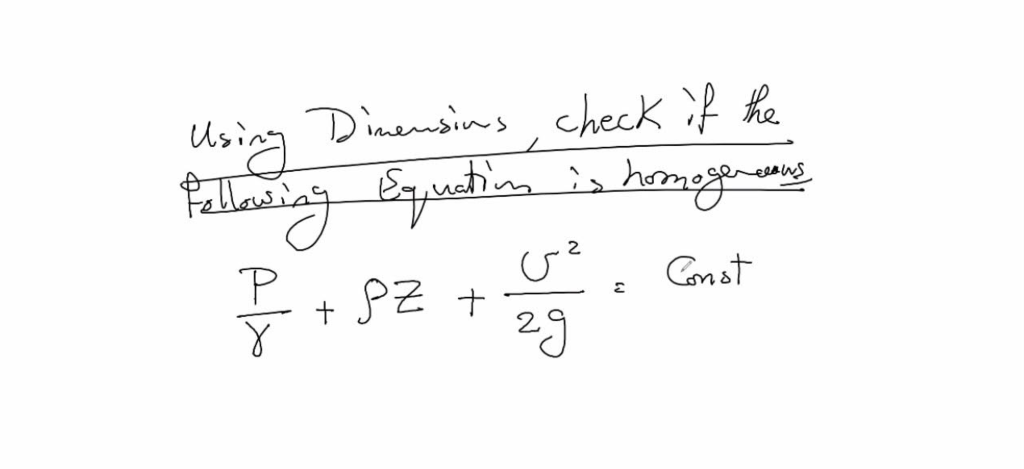 Using Dimensions, check if the
following Equation is homogeneous
P/γ + ρZ + v²/2g = Const